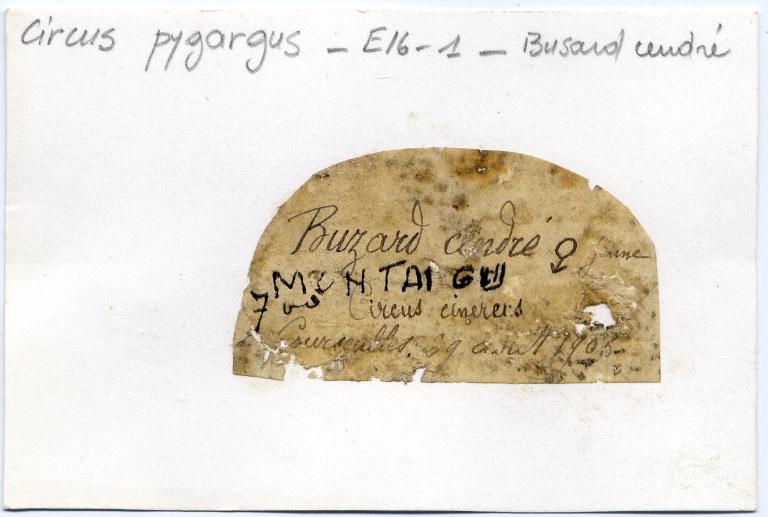 Circus pygargus - E16-1 - Busard cendré
Buzard cendré ♀ jeune
MONTAIGU
700
Circus cinereus
Courseulles, 29 1903